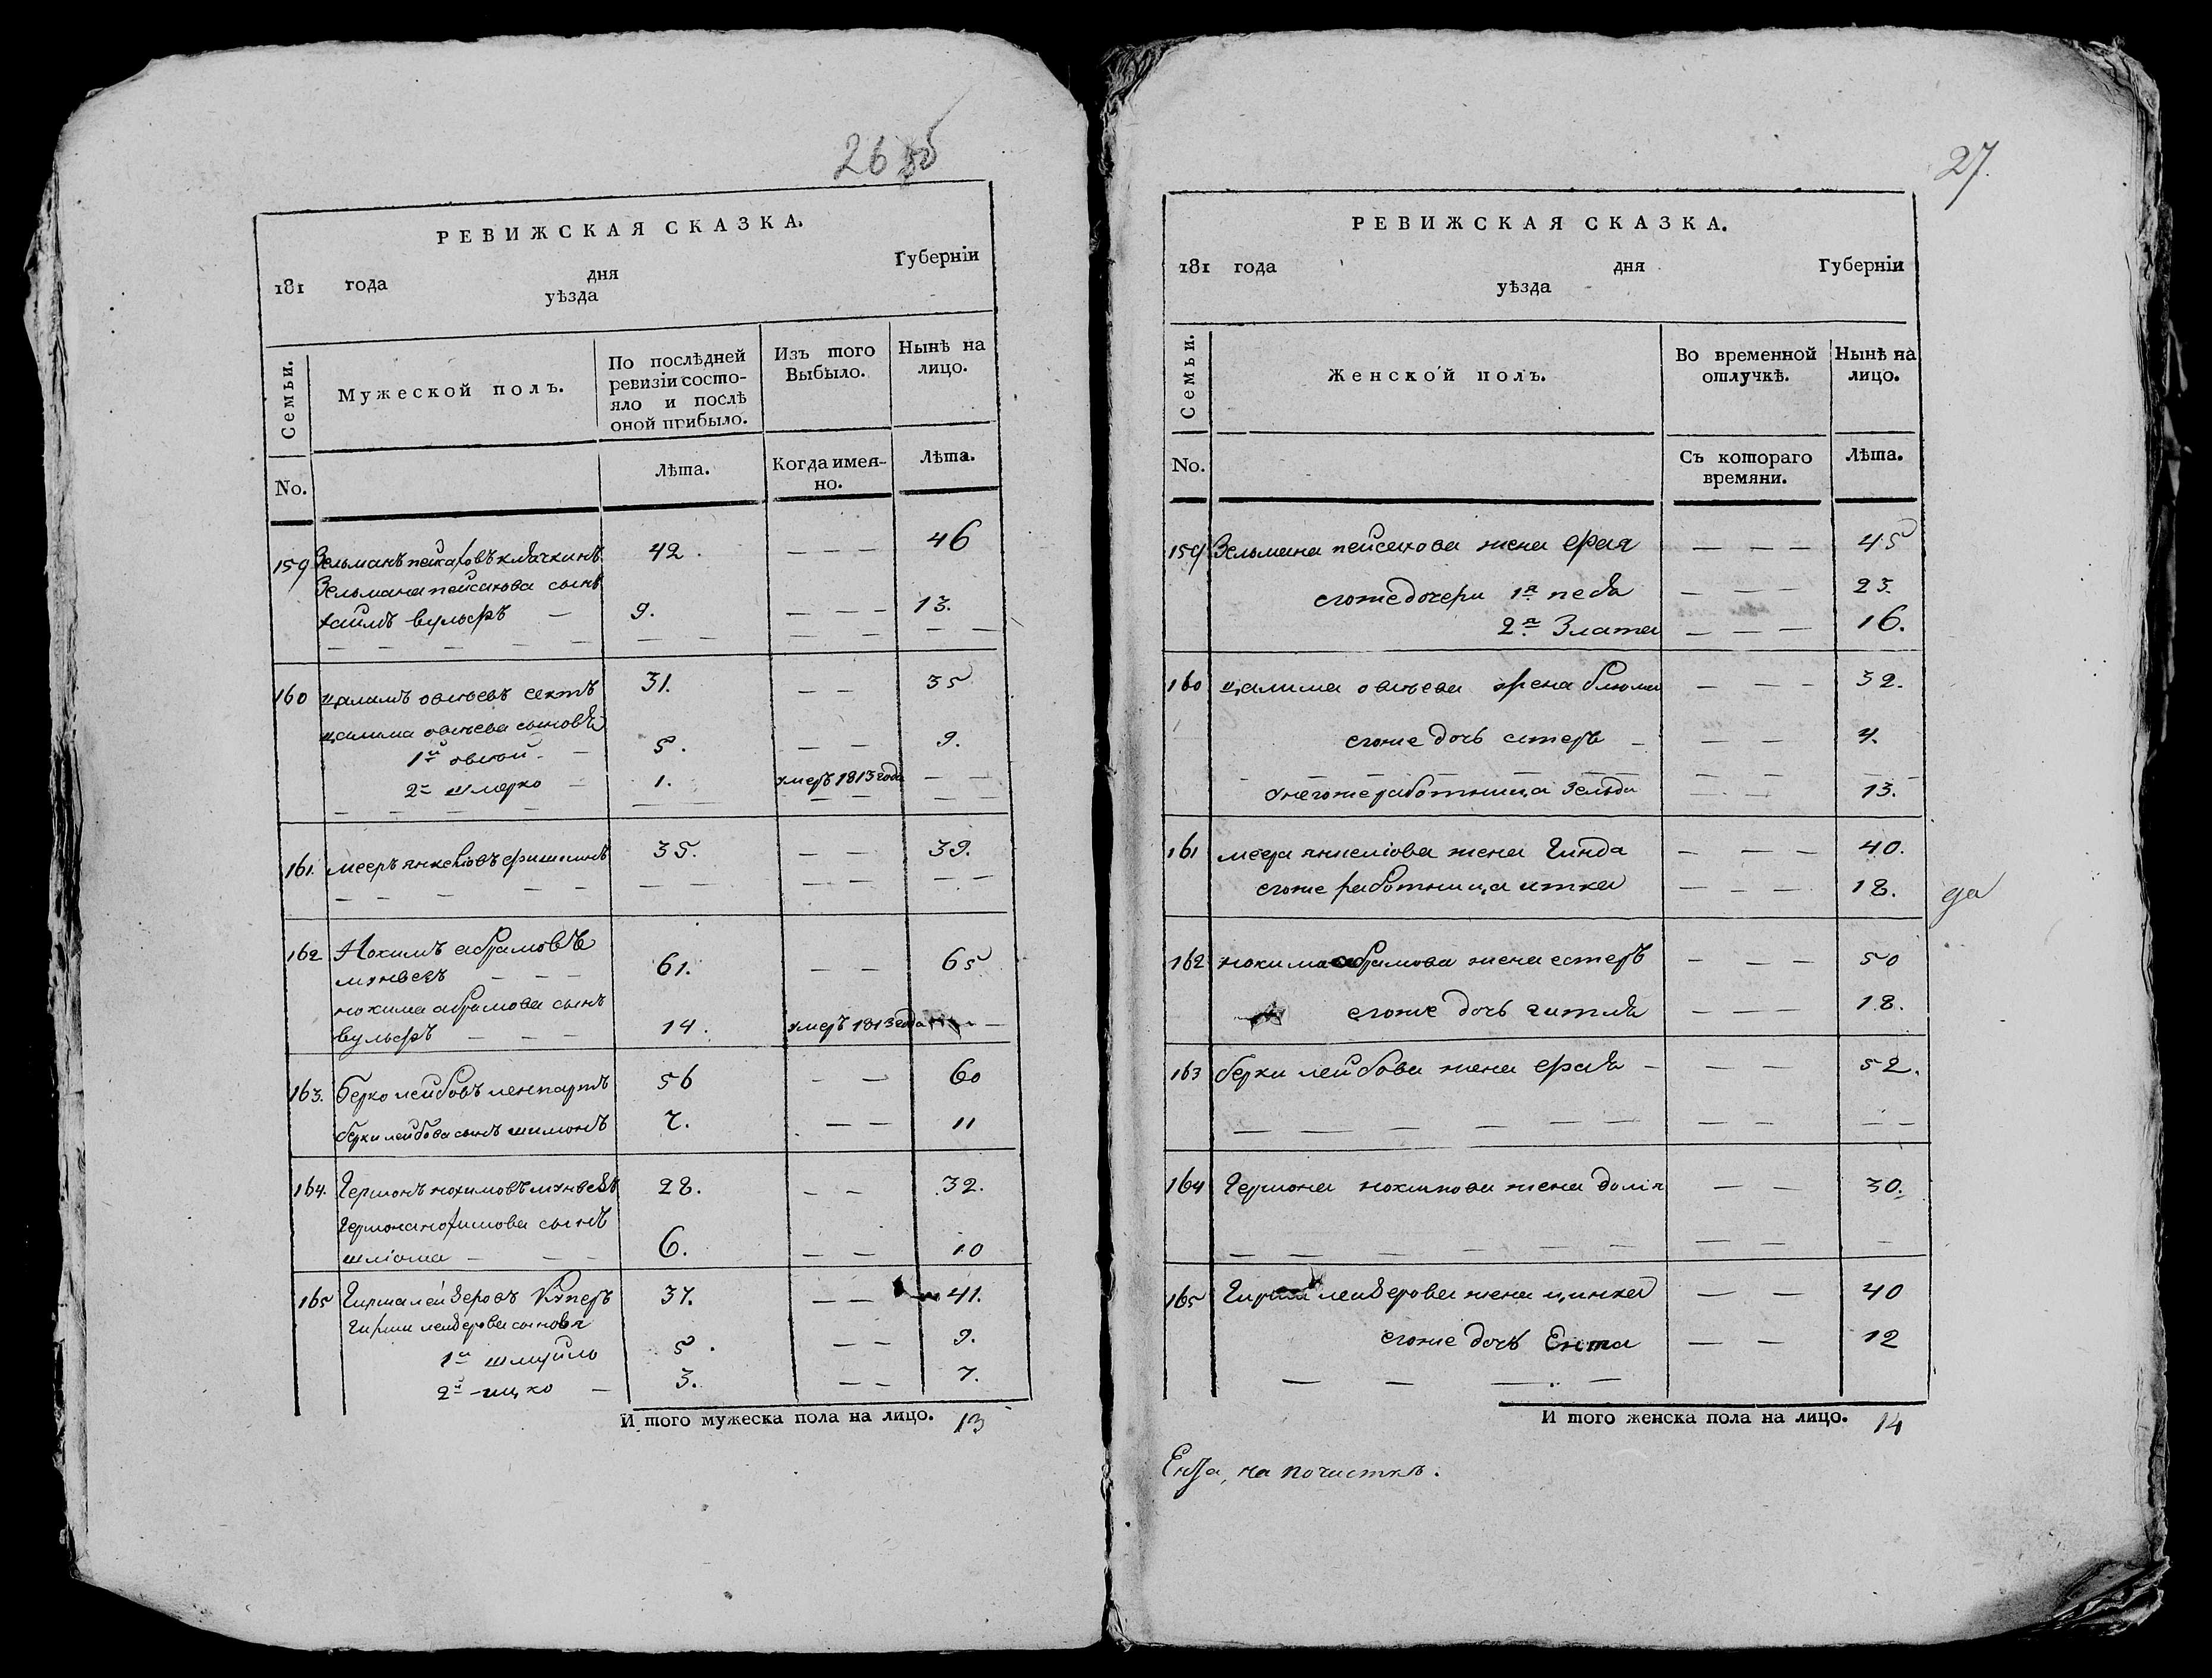 26 об
РЕВИЖСКАЯ СКАЗКА.
181 года дня Губернїи
уѣзда
Семьи. Мужеской полъ. По послѣдней ревизїи состояло и послѣ оной прибыло. Изъ того Выбыло. Нынѣ на лицо.
No. Лѣта. Когда именно. Лѣта.
159 Зельманъ пейсаховъ клячкинъ 42. — — — 46
Зельмана пейсахова сынъ
хаимъ вульфъ — 9. — — — 13.
160 цалимъ овсеевъ 31. — — 35
цалима овсеева сыновья
1й овсей — 5. — — 9.
2й шмерко — 1. умеръ 1813 года — —
161. мееръ янкелїовъ фишкинъ 35. — — 39.
162 Нохимъ абрамовъ 61. — — 65
нохима абрамова сынъ
вульфъ — — — 14. умеръ 1813 года — —
163. берко лейбовъ 56 — — 60
берки лейбова сынъ шимонъ 7. — — 11
164. Гершонъ нохимовъ 28. — — 32.
Гершона нохимова сынъ
шлїома — — — 6. — — 10
165 Гирша лейзеровъ Куперъ 37. — — 41.
Гирши лейзерова сыновья
1й шмуйло 5. — — 9.
2й ицко — 3. — — 7.
И того мужеска пола на лицо. 13
27.
РЕВИЖСКАЯ СКАЗКА.
181 года дня Губернїи
уѣзда
Семьи. Женской полъ. Во временной отлучкѣ. Нынѣ на лицо.
No. Съ котораго времяни. Лѣта.
159 Зельмана пейсахова жена фрая — — — 45
егоже дочери 1я песя — — — 23.
2я Злата — — — 16.
160 цалима овсеева жена блюма — — — 32.
егоже дочь естеръ — — — 4.
унегоже работница зельда — — 13.
161 меера янкелїова жена Гинда — — — 40.
егоже работница итка — — — 18. да
162 нохима абрамова жена естеръ — — — 50
егоже дочь гитля — — — 18.
163 берки лейбова жена фрая — — — 52.
164 Гершона нохимова жена — — 30.
165 Гирши лейзерова жена ципка — — 40
егоже дочь Ента — — 12
И того женска пола на лицо. 14
Ента, на почисткѣ.